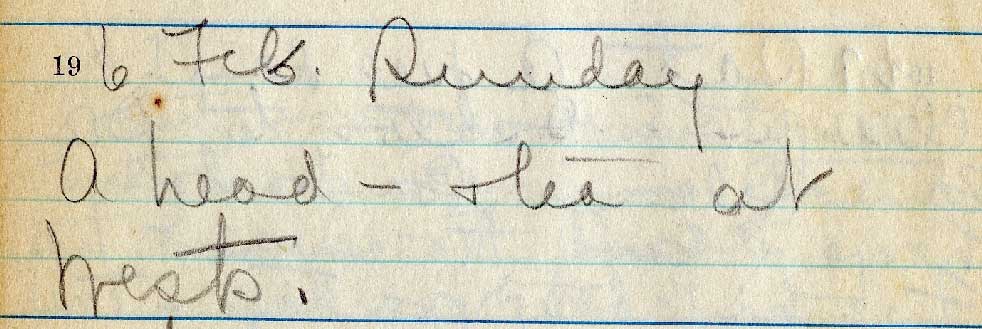 19 6 Feb. Sunday
A head - tea at
Wests.